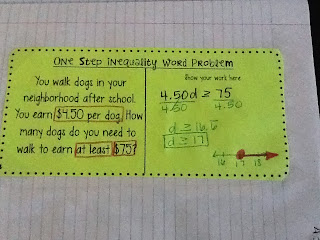 One Step Inequality Word Problem
You walk dogs in your
neighborhood after school.
You earn $4.50 per dog. How
many dogs do you need to
walk to earn at least $75?
Show your work here
4.50d ≥ 75
4.50 4.50
d ≥ 16.6̅
d ≥ 17
16 17 18